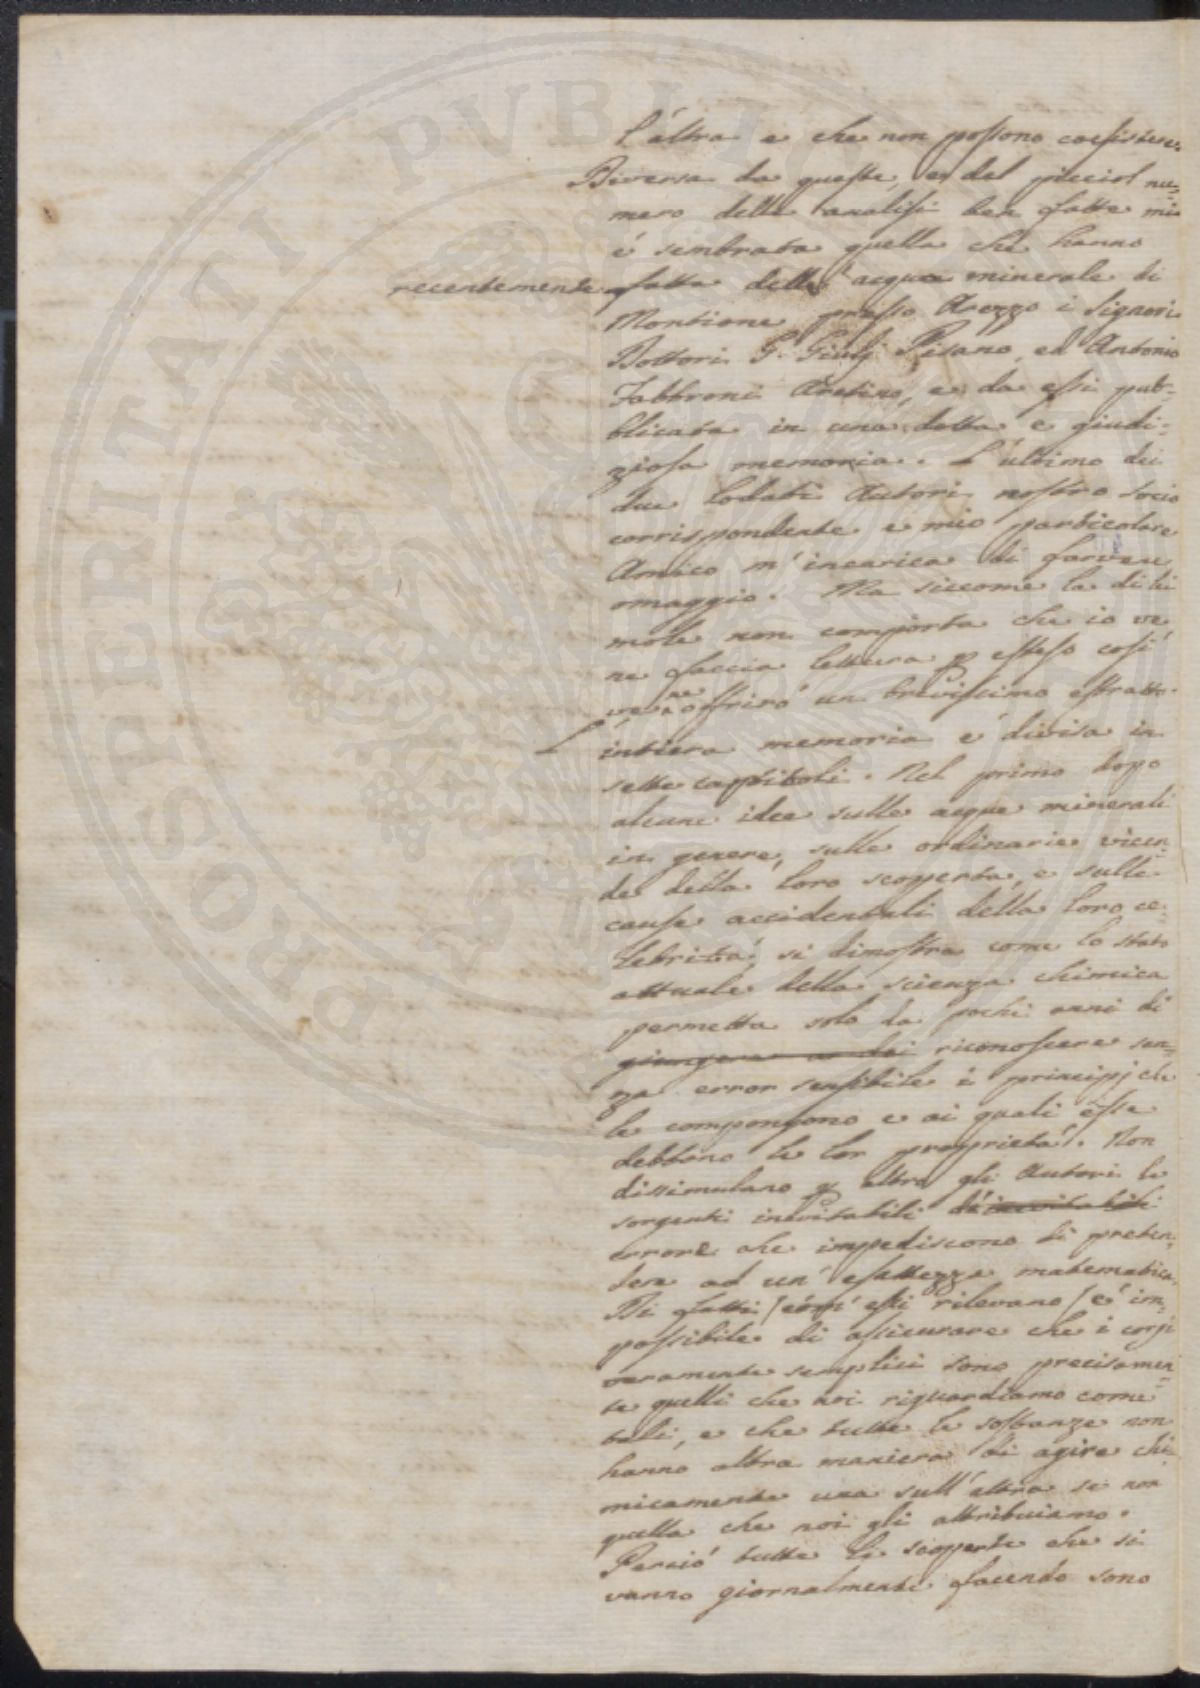 l'altra e che non possono coesistere.
Diversa da queste, e del picciol nu=
mero delle analisi ben fatte mi
é sembrata quella che hanno
recentemente fatta dell' acqua minerale di
Montione presso Arezzo i Signori
Dottori G. Giulj Pisano, ed Antonio
Fabbroni Aretino, e da essi pub=
blicata in una dotta e giudi=
ziosa memoria. L'ultimo dei
due lodati Autori nostro socio
corrispondente e mio particolare
Amico m'incarica di farvene
omaggio. Ma siccome la di lei
mole non comporta che io ve
ne faccia lettura p esteso così
ve ne offriró un brevissimo estratto.
L'intiera memoria é divisa in
sette capitoli. Nel primo dopo
alcune idee sulle acque minerali
in genere, sulle ordinarie vicen=
de della loro scoperta, e sulle
cause accidentali della loro ce=
lebrità, si dimostra come lo stato
attuale della scienza chimica
permetta solo da pochi anni di
giungere a riconoscere sen=
za error sensibile i principj che
le compongono e ai quali esse
debbono le lor proprietà. Non
dissimulano p altro gli Autori le
sorgenti inevitabili d'inevitabili
errore che impediscono di preten=
dere ad un' esattezza matematica.
Di fatti (com' essi rilevano) é im=
possibile di assicurare che i corpi
veramente semplici sono precisamen=
te quelli che noi riguardiamo come
tali, e che tutte le sostanze non
hanno altra maniera di agire chi=
micamente una sull'altra se non
quella che noi gli attribuiamo.
Perció tutte le scoperte che si
vanno giornalmente facendo sono
PROSPERITATI PVBLIC